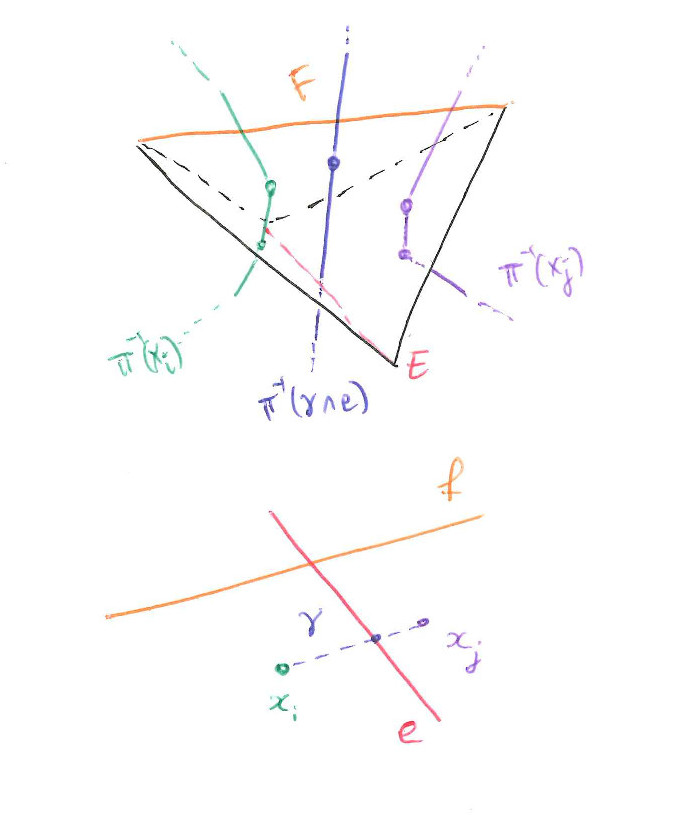 F
π⁻¹(xⱼ)
π⁻¹(xᵢ)
E
π⁻¹(γ∩e)
f
γ
xⱼ
xᵢ
e